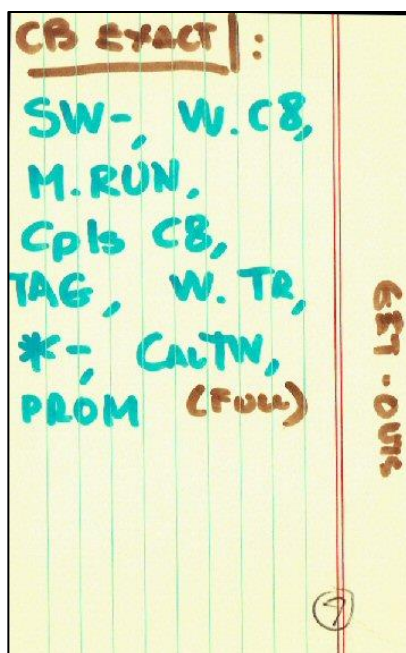 CB EXACT:
SW-, W.C8,
M.RUN,
Cpls C8,
TAG, W. TR,
*-, CALTW,
PROM (FULL)
GET-OUTS
7